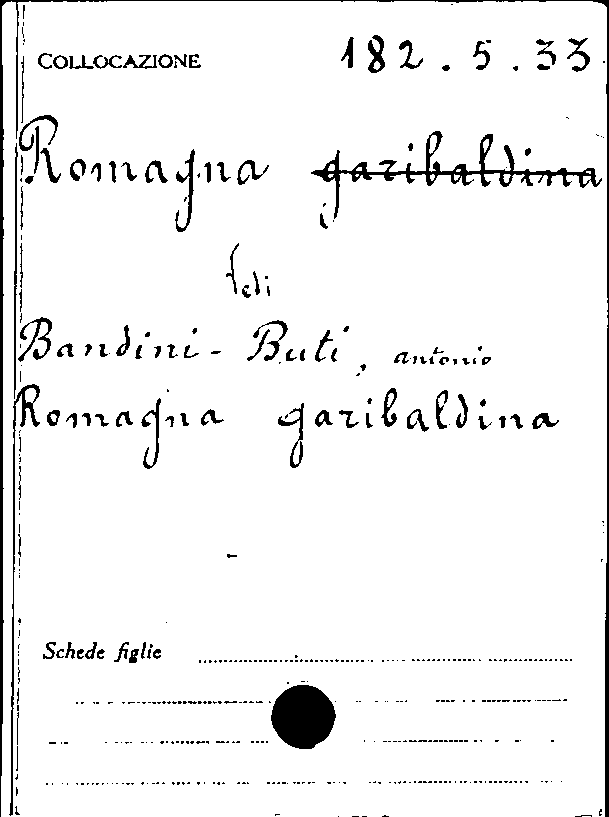 COLLOCAZIONE 182.5.33
Romagna garibaldina
Vedi
Bandini-Buti, antonio
Romagna garibaldina
Schede figlie